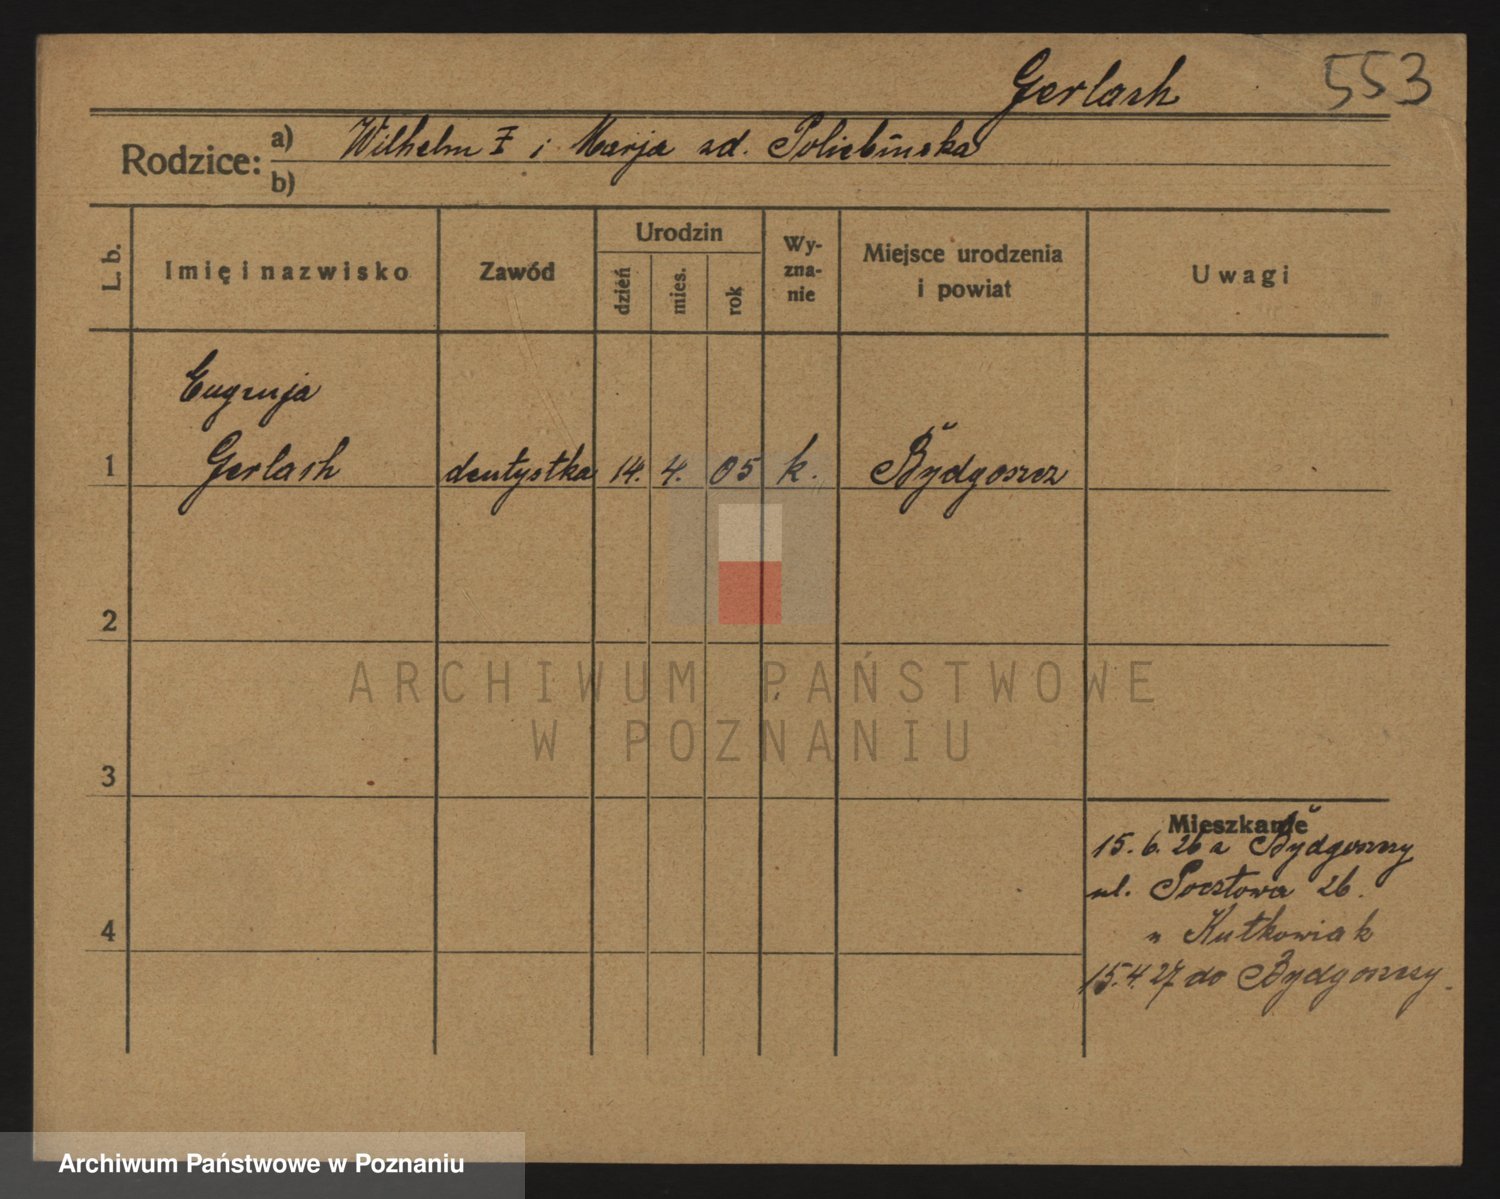 Gerlach 553
Rodzice: a) Wilhelm i Marja zd.
b)
L. b.
Imię i nazwisko
Zawód
Urodzin
dzień
mies.
rok
Wy-
zna-
nie
Miejsce urodzenia
i powiat
Uwagi
Eugenja
1 Gerlach dentystka 14. 4. 05 k. Bydgoszcz
2
3
4
Mieszkanie
15. 6. 26 z Bydgoszczy
ul. Pocztowa 26.
u Kutkowiak
15.4.27 do Bydgoszczy.
ARCHIWUM PAŃSTWOWE
W POZNANIU
Archiwum Państwowe w Poznaniu